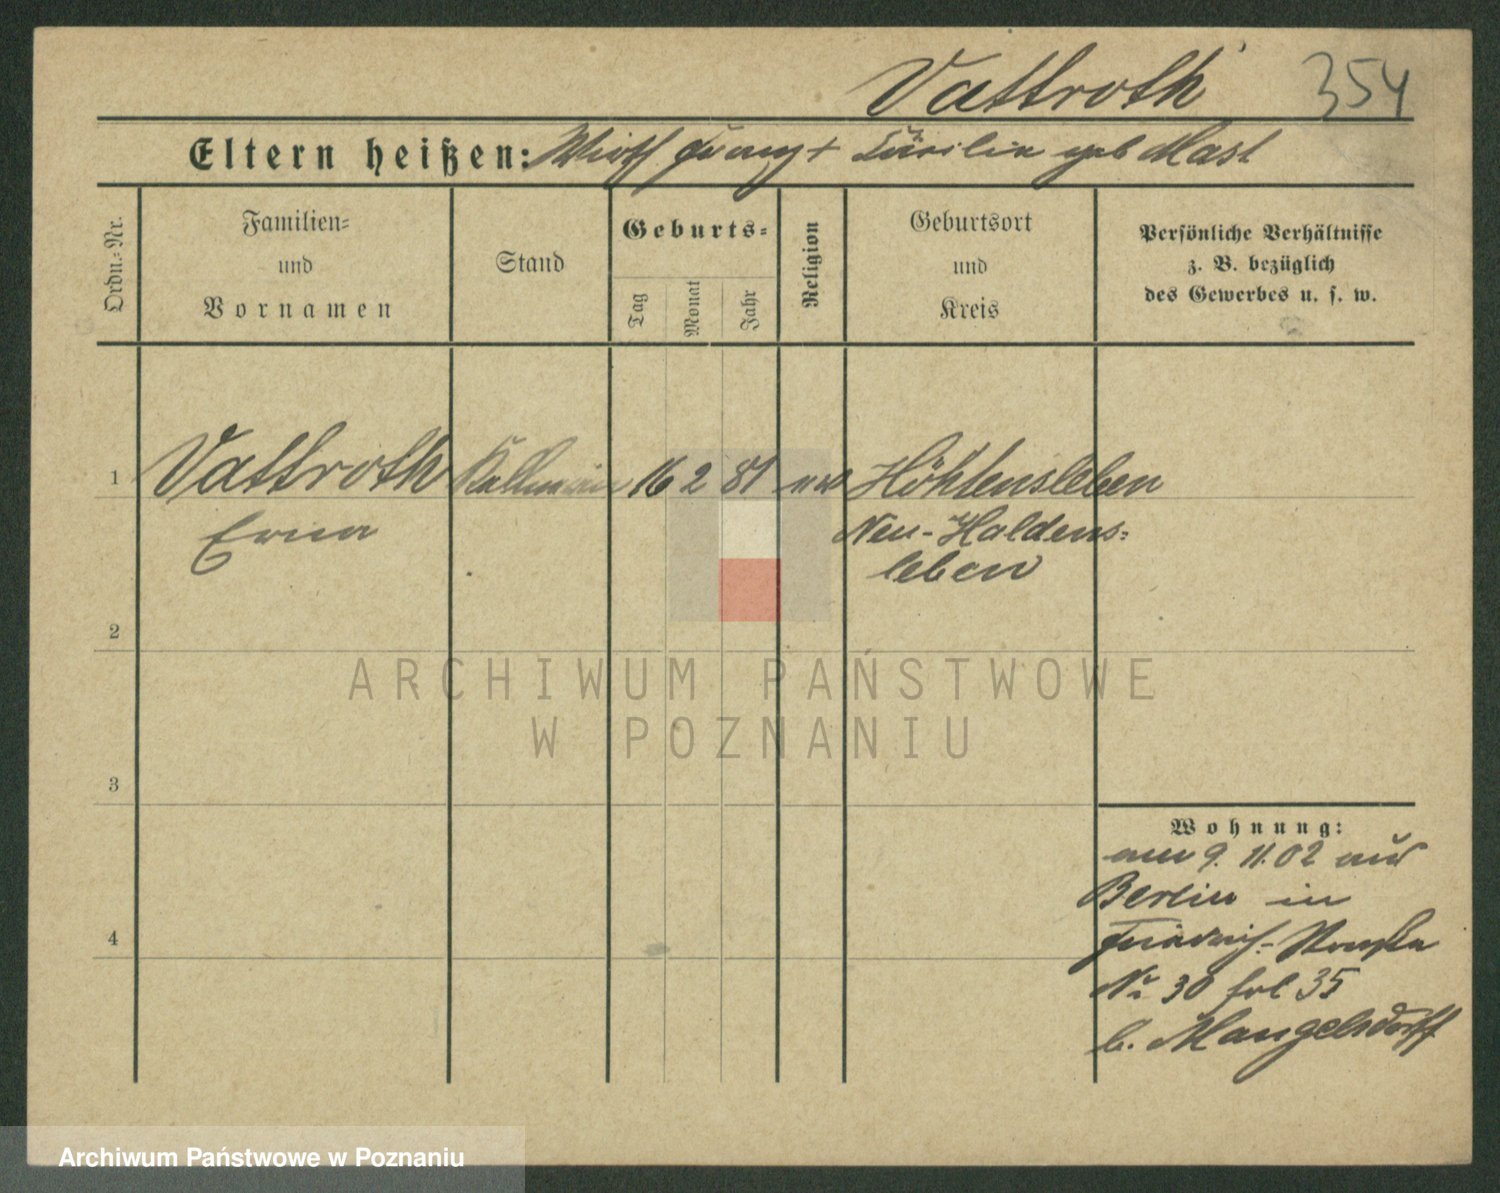 Vattroth
354
Eltern heißen: Wirth Franz + Cäcilia geb Mast
Ordn.-Nr.
Familien-
und
Vornamen
Stand
Geburts-
Tag
Monat
Jahr
Religion
Geburtsort
und
Kreis
Persönliche Verhältnisse
z. B. bezüglich
des Gewerbes u. s. w.
1 Vattroth 16 2 81 Hötensleben
Neu-Haldens-
leben
2
3
4
Wohnung:
am 9. 11. 02 aus
Berlin in
Friedrich-Straße
No 30 fol 35
b. Mangelsdorff
ARCHIWUM PAŃSTWOWE
W POZNANIU
Archiwum Państwowe w Poznaniu